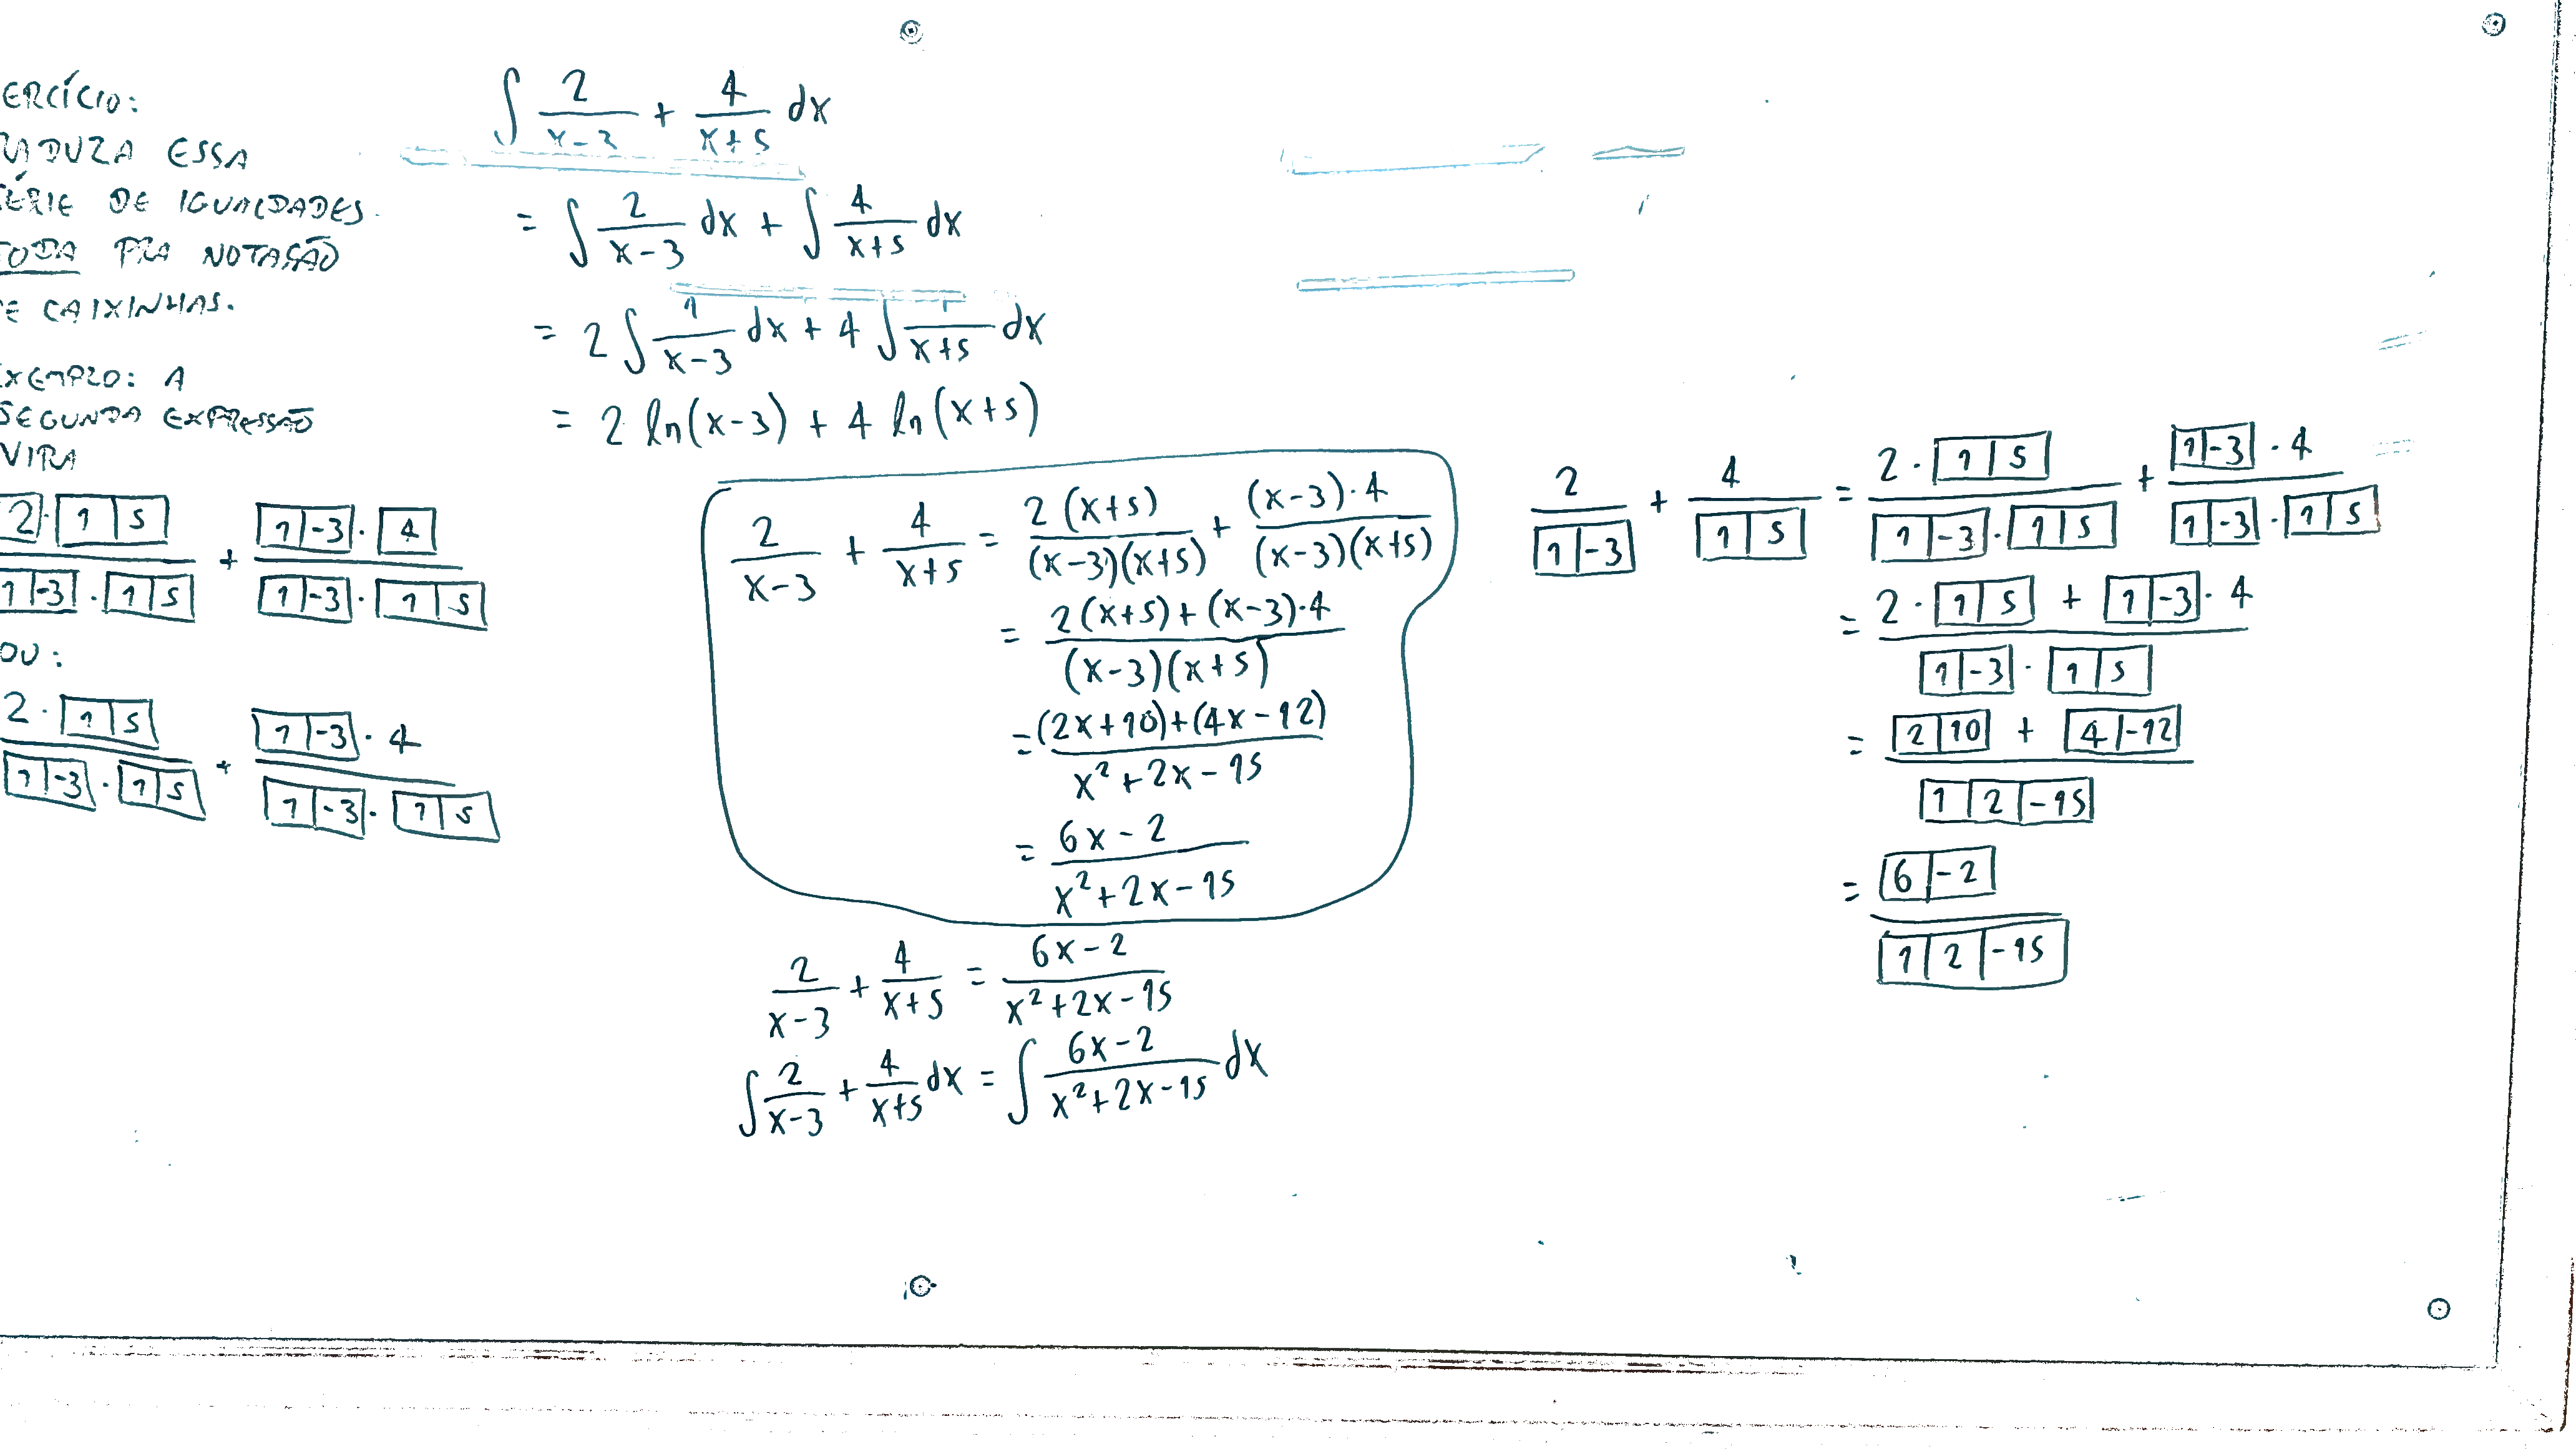 ERCÍCIO:
DUZA ESSA
SÉRIE DE IGUALDADES
TODA PRA NOTAÇÃO
E CAIXINHAS.
EXEMPLO: A
SEGUNDA EXPRESSÃO
VIRA
2·[1|5] / [1|-3]·[1|5] + [1|-3]·[4] / [1|-3]·[1|5]
OU:
2·[1|5] / [1|-3]·[1|5] + [1|-3]·4 / [1|-3]·[1|5]
∫ 2/(x-3) + 4/(x+5) dx
= ∫ 2/(x-3) dx + ∫ 4/(x+5) dx
= 2 ∫ 1/(x-3) dx + 4 ∫ 1/(x+5) dx
= 2 ln(x-3) + 4 ln(x+5)
2/(x-3) + 4/(x+5) = 2(x+5)/(x-3)(x+5) + (x-3)·4/(x-3)(x+5)
= 2(x+5)+(x-3)·4 / (x-3)(x+5)
= (2x+10)+(4x-12) / x²+2x-15
= 6x-2 / x²+2x-15
2/(x-3) + 4/(x+5) = 6x-2 / x²+2x-15
∫ 2/(x-3) + 4/(x+5) dx = ∫ 6x-2 / x²+2x-15 dx
2/[1|-3] + 4/[1|5] = 2·[1|5] / [1|-3]·[1|5] + [1|-3]·4 / [1|-3]·[1|5]
= 2·[1|5] + [1|-3]·4 / [1|-3]·[1|5]
= [2|10] + [4|-12] / [1|2|-15]
= [6|-2] / [1|2|-15]